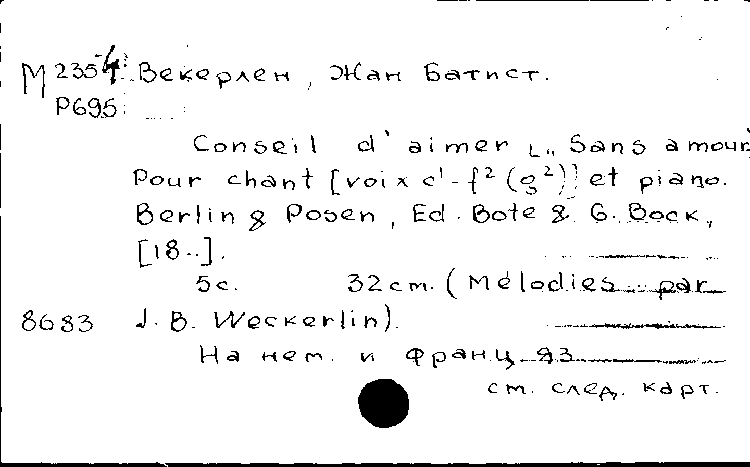 М 235-4. Векерлен, Жан Батист.
Р695
Conseil d'aimer [„Sans amour,
Pour chant [voix c¹-f² (g²)] et piano.
Berlin & Posen, Ed. Bote & G. Bock,
[18..].
5c. 32cm. (Mélodies par
8683 J. B. Weckerlin).
На нем. и франц яз
ст. след. карт.